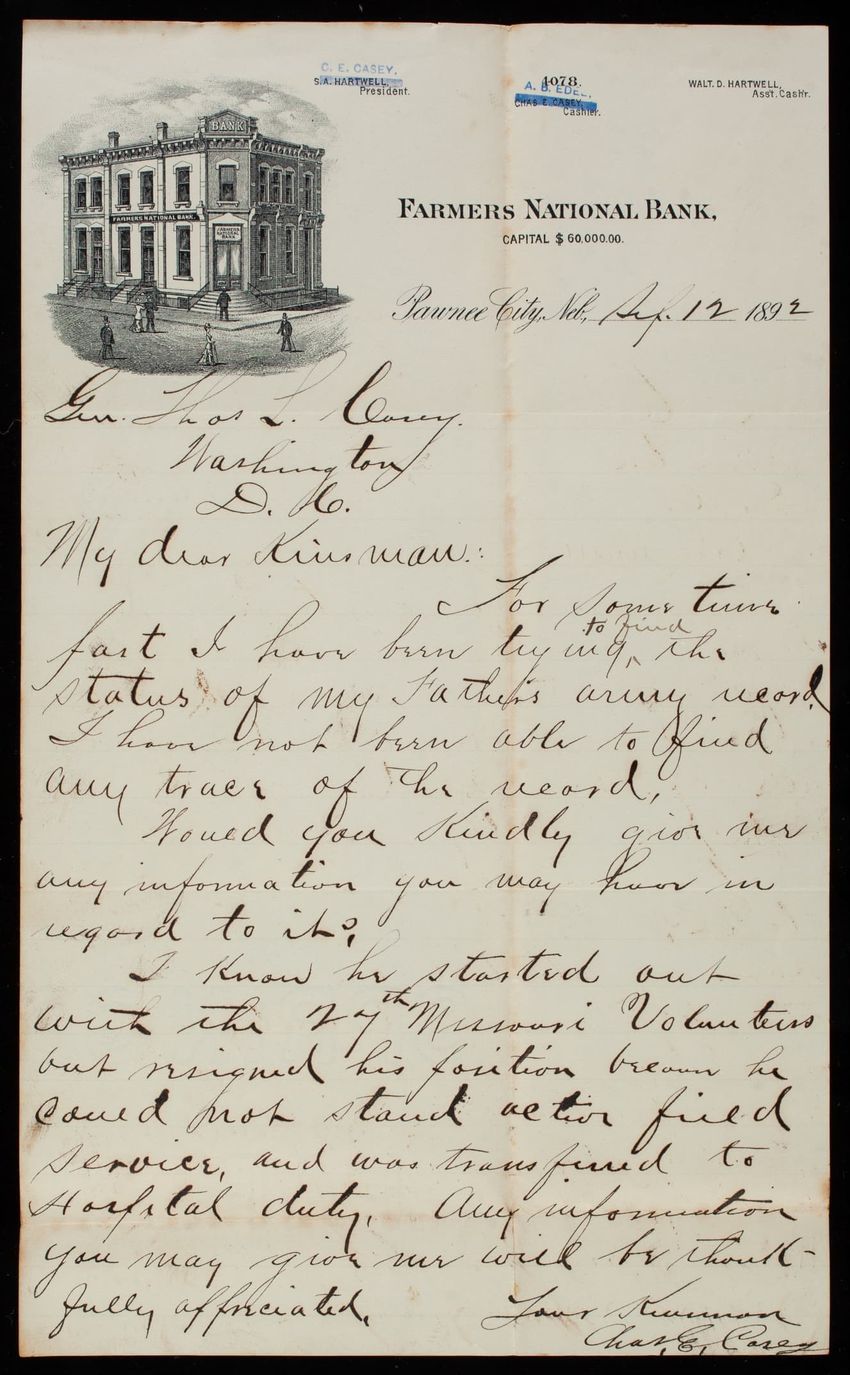 C. E. CASEY,
S. A. HARTWELL,
President.
4078.
A. B. EDEE,
CHAS. E. CASEY,
Cashier.
WALT. D. HARTWELL,
Ass't. Cash'r.
BANK
FARMERS NATIONAL BANK.
FARMERS
NATIONAL
BANK
FARMERS NATIONAL BANK,
CAPITAL $ 60,000.00.
Pawnee City, Neb., Sep. 12 1892
Gen. Thos L. Casey.
Washington
D. C.
My dear Kinsman:
For some time
past I have been trying to find the
status of my Father's army record.
I have not been able to find
any trace of the record.
Would you kindly give me
any information you may have in
regard to it?
I know he started out
with the 27th Missouri Volunteers
but resigned his position because he
could not stand active field
service, and was transferred to
Hospital duty. Any information
you may give me will be thank-
fully appreciated.
Your Kinsman
Chas. E. Casey